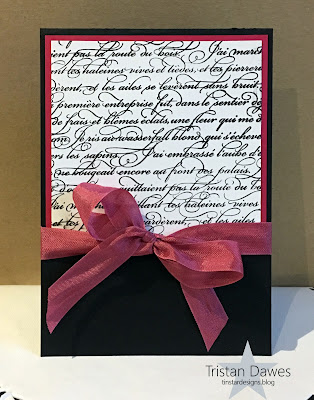 aient pas la route du bois. J'ai marché
tant les haleines vives et tièdes, et les pierreries
dèrent, et les ailes se levèrent sans bruit.
première entreprise fut, dans le sentier dé
de frais et blêmes éclats, une fleur qui me d
nom. Je ris au wasserfall blond qui s'échevela
les sapins. J'ai embrassé l'aube d'é
ne bougeait encore au front des palais.
uittaient pas la route du bois.
J'ai mar les haleines vives
et les ailes
Tristan Dawes
tinstardesigns.blog